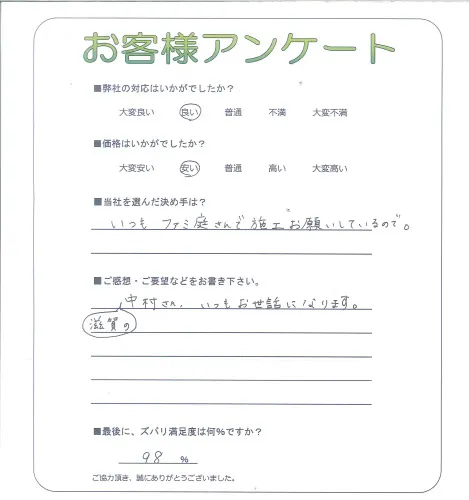 お客様アンケート
■弊社の対応はいかがでしたか？
大変良い 良い 普通 不満 大変不満
■価格はいかがでしたか？
大変安い 安い 普通 高い 大変高い
■当社を選んだ決め手は？
いつも ファミ庭さんで施工お願いしているので。
■ご感想・ご要望などをお書き下さい。
中村さん、いつもお世話になります。
滋賀の
■最後に、ズバリ満足度は何%ですか？
98 %
ご協力頂き、誠にありがとうございました。